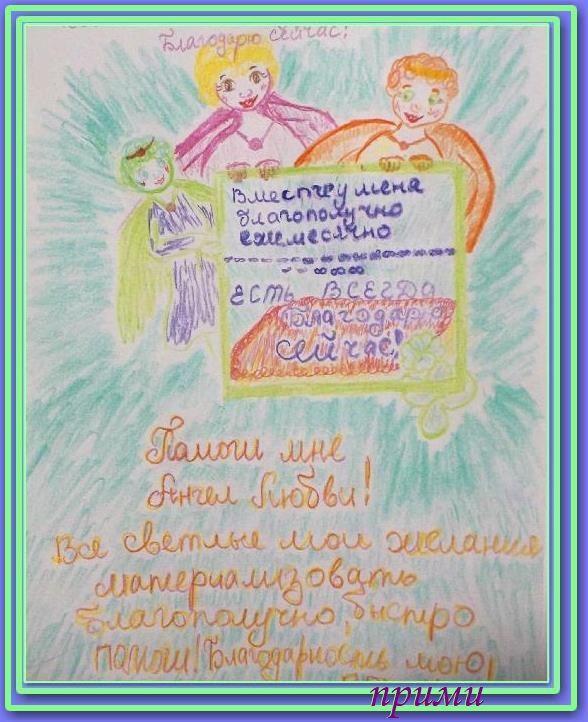 Благодарю сейчас!
Вместе у меня
благополучно
ежемесячно
ЕСТЬ ВСЕГДА
Благодарю
сейчас!
Помоги мне
Ангел Любви!
Все светлые мои желания
материализовать
Благополучно, быстро
помоги! Благодарность мою,
прими